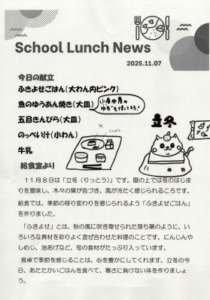 School Lunch News
2025.11.07
今日の献立
ふきよせごはん(大わん内ピンク)
魚のゆうあん焼き(大皿)
五目きんぴら(大皿)
のっぺい汁(小わん)
牛乳
給食室より
立冬
11月8日は「立冬(りっとう)」です。暦の上では冬のはじまりを意味し、木々の葉が色づき、風が冷たく感じられるころです。
給食では、季節の移り変わりを感じられるよう「ふきよせごはん」を作りました。
「ふきよせ」とは、秋の風に吹き寄せられた落ち葉のように、いろいろな具材を彩りよく混ぜ合わせた料理のことです。にんじんやしめじ、油あげなど、旬の食材がたっぷり入っています。
食卓で季節を感じることは、心を豊かにしてくれます。立冬の今日、あたたかいごはんを食べて、寒さに負けない体を作りましょう。